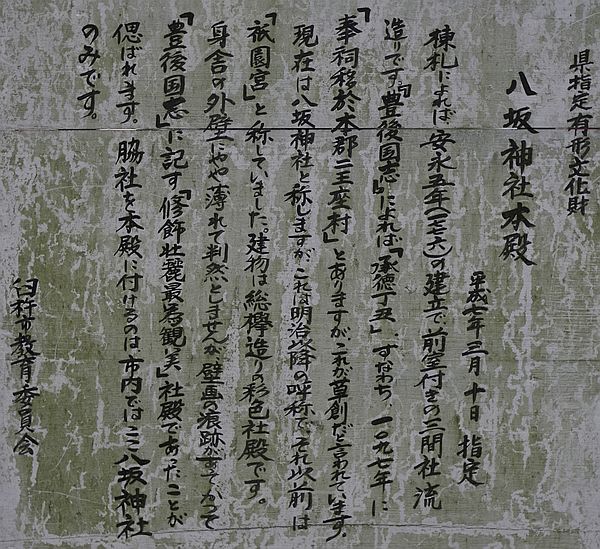 県指定有形文化財
八坂神社本殿
平成七年三月十日 指定
棟札によれば、安永五年(一七七六)の建立で前室付きの三間社流
造りです。「豊後国志」によれば「承徳丁丑」、すなわち、一〇九七年に
「奉祠移於本郡二王座村」とありますが、これが草創だと言われています。
現在は八坂神社と称しますが、これは明治以降の呼称で、それ以前は
「祇園宮」と称していました。建物は総欅造りの彩色社殿です。
身舎の外壁にやや薄れて判然としませんが、壁画の痕跡があってかつて
「豊後国志」に記す「修飾壮麗最為観美」社殿であったことが
偲ばれます。脇社を本殿に付けるのは市内ではここ八坂神社
のみです。
臼杵市教育委員会